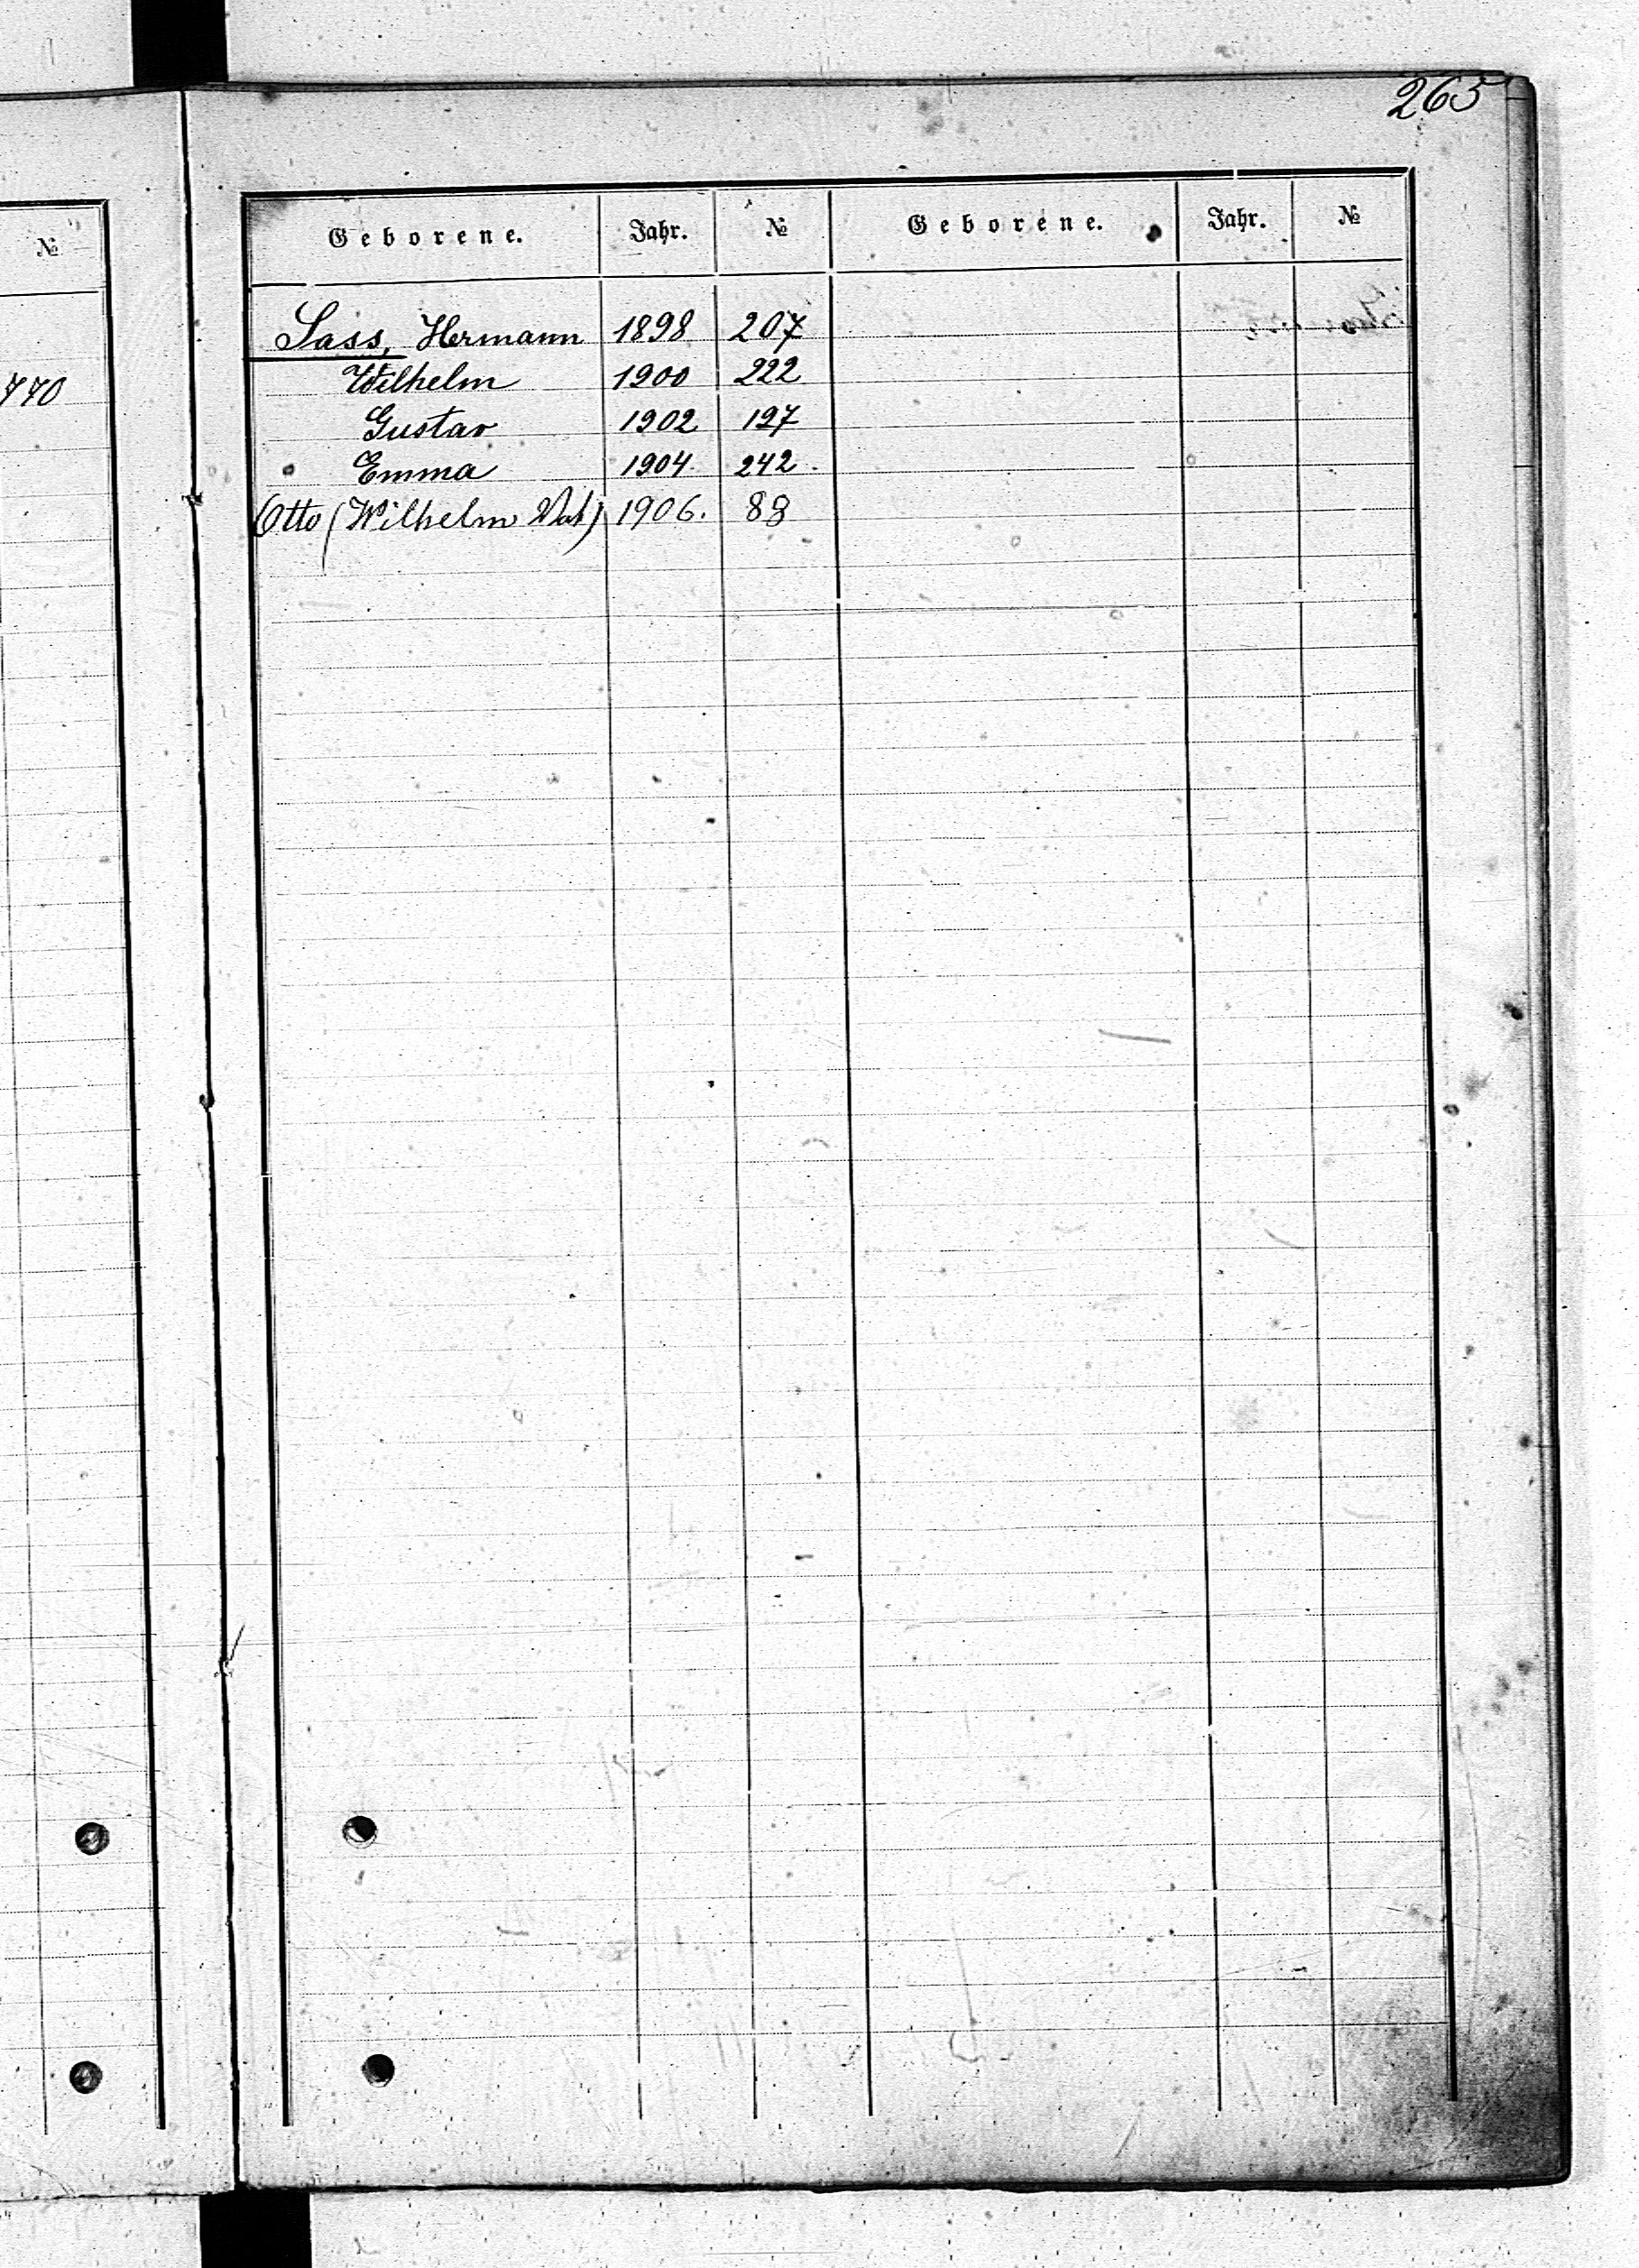 265
№
770
Geborene. Jahr. № Geborene. Jahr. №
Sass, Hermann 1898 207
Wilhelm 1900 222
Gustav 1902 197
Emma 1904. 242.
Otto (Wilhelm Vat) 1906. 88